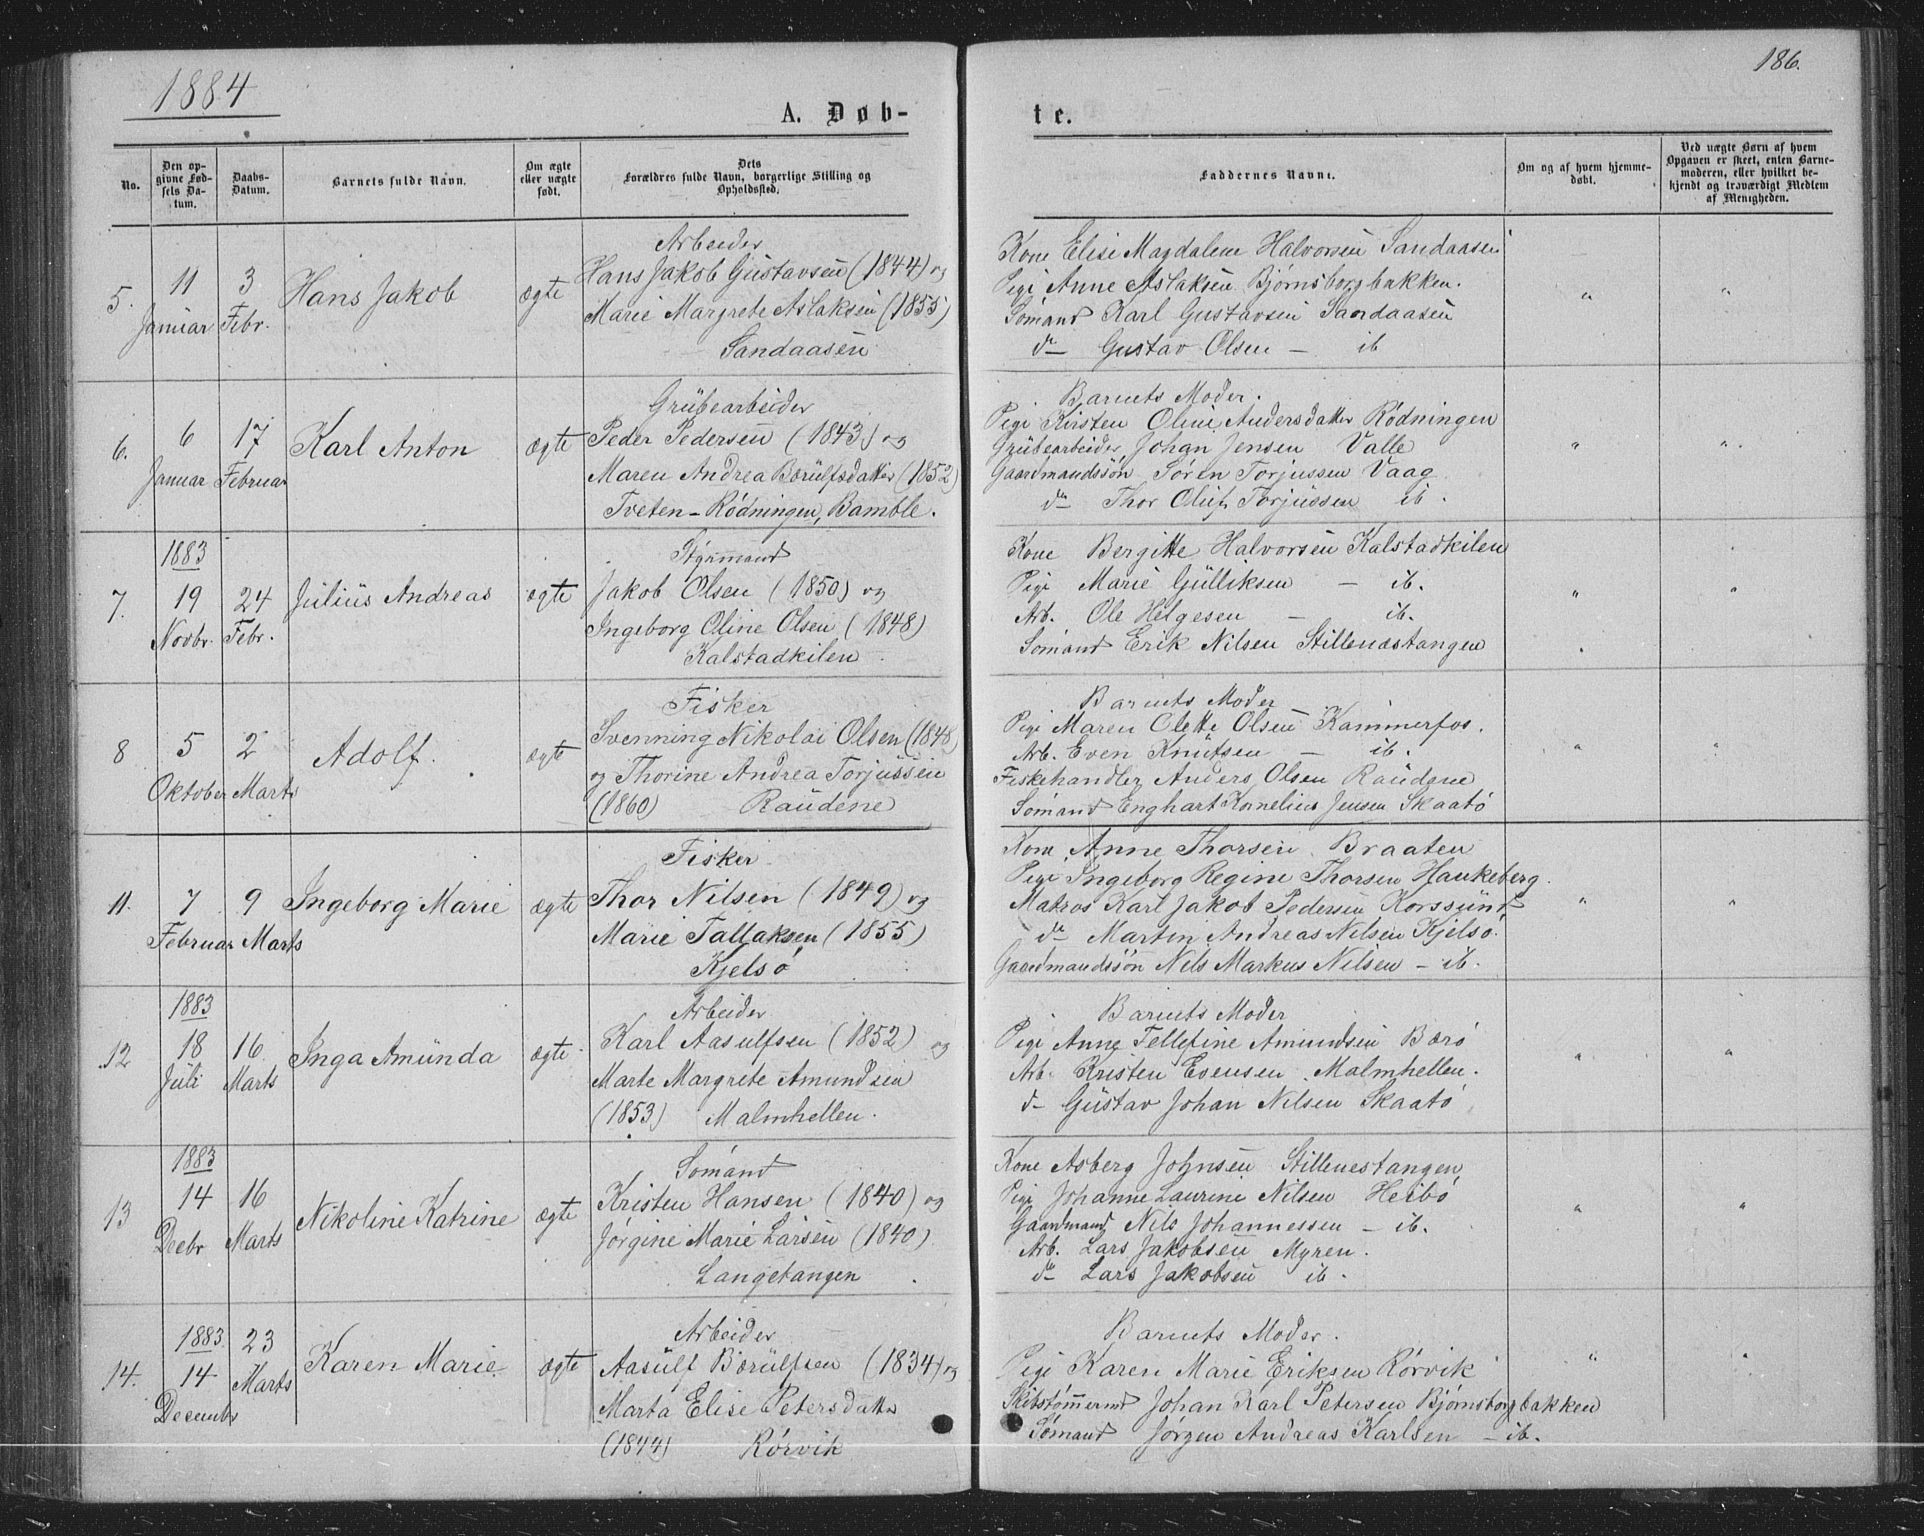 1884
186.
A. Døb-
te.
No.
Den op-
givne Fød-
sels Da-
tum.
Daabs-
Datum.
Barnets fulde Navn.
Om ægte
eller uægte
født.
Dets
Forældres fulde Navn, borgerlige Stilling og
Opholdssted.
Faddernes Navne.
Om og af hvem hjemme-
døbt.
Ved uægte Børn af hvem
Opgaven er skeet, enten Barne-
moderen, eller hvilket be-
kjendt og troværdigt Medlem
af Menigheden.
5.
11
Januar
3
Febr.
Hans Jakob
ægte
Arbeider
Hans Jakob Gustavsen (1844) og
Marie Margrete Aslaksen (1855)
Sandaasen
Kone Elise Magdalene Halvorsen Sandaasen
Pige Anne Aslaksen Bjørnsborgbakken.
Sömand Karl Gustavsen Sandaasen
do Gustav Olsen — ib
"
"
6.
6
Januar
17
Februar
Karl Anton
ægte
Grübearbeider
Peder Pedersen (1843) og
Maren Andrea Børülfsdatter (1852)
Tveten - Rødningen, Bamble.
Barnets Moder.
Pige Kirsten Oline Andersdatter Rödningen
Grübearbeider Johan Jensen Valle
Gaardmandssön Sören Torjussen Vaag
do Thor Oluf Torjussen ib.
"
"
7.
1883
19
Novbr.
24
Febr.
Julius Andreas
ægte
Styrmand
Jakob Olsen (1850) og
Ingeborg Oline Olsen (1848)
Kalstadkilen
Kone Bergitte Halvorsen Kalstadkilen
Pige Marie Gülliksen — ib.
Arb. Ole Helgesen — ib.
Sömand Erik Nilsen Stillenæstangen
"
"
8
5
Oktober
2
Marts
Adolf.
ægte
Fisker
Svenning Nikolai Olsen (1848)
og Thorine Andrea Torjussen
(1860) Raudene
Barnets Moder
Pige Maren Olette Olsen Kammerfos.
Arb. Even Knutsen — ib.
Fiskehandler Anders Olsen Raudene
Sömand Enghart Kornelius Jensen Skaatö
"
"
11.
7
Februar
9
Marts
Ingeborg Marie
ægte
Fisker
Thor Nilsen (1849) og
Marie Tallaksen (1855)
Kjelsö
Kone Anne Thorsen Braaten
Pige Ingeborg Regine Thorsen Haukeberg
Matros Karl Jakob Pedersen Korssund
do Martin Andreas Nilsen Kjelsö.
Gaardmandssön Nels Markus Nilsen — ib.
"
"
12
1883
18
Juli
16
Marts
Inga Amünda
ægte
Arbeider
Karl Aasulfsen (1852) og
Marte Margrete Amundsen
(1853) Malmhellen.
Barnets Moder
Pige Anne Tellefine Amundsen Bærö
Arb. Kristen Evensen Malmhellen.
do Güstav Johan Nilsen Skaatö
"
"
13
1883
14
Decbr
16
Marts
Nikoline Katrine
ægte
Sömand
Kristen Hansen (1840) og
Jørgine Marie Larsen (1840)
Langetangen
Kone Asberg Johnsen Stillenestangen
Pige Johanne Laurine Nilsen Heibö
Gaardmand Nils Johannessen — ib.
Arb. Lars Jakobsen Myren.
do Lars Jakobsen ib.
"
"
14.
1883
14
Decembr
23
Marts
Karen Marie
ægte
Arbeider
Aasülf Børülfsen (1834) og
Marta Elise Petersdatter
(1844) Rörvik
Barnets Moder.
Pige Karen Marie Eriksen Rörvik
Skibstömmermd Johan Karl Petersen Bjørnsborgbakken
Sömand Jørgen Andreas Karlsen — ib.
"
"